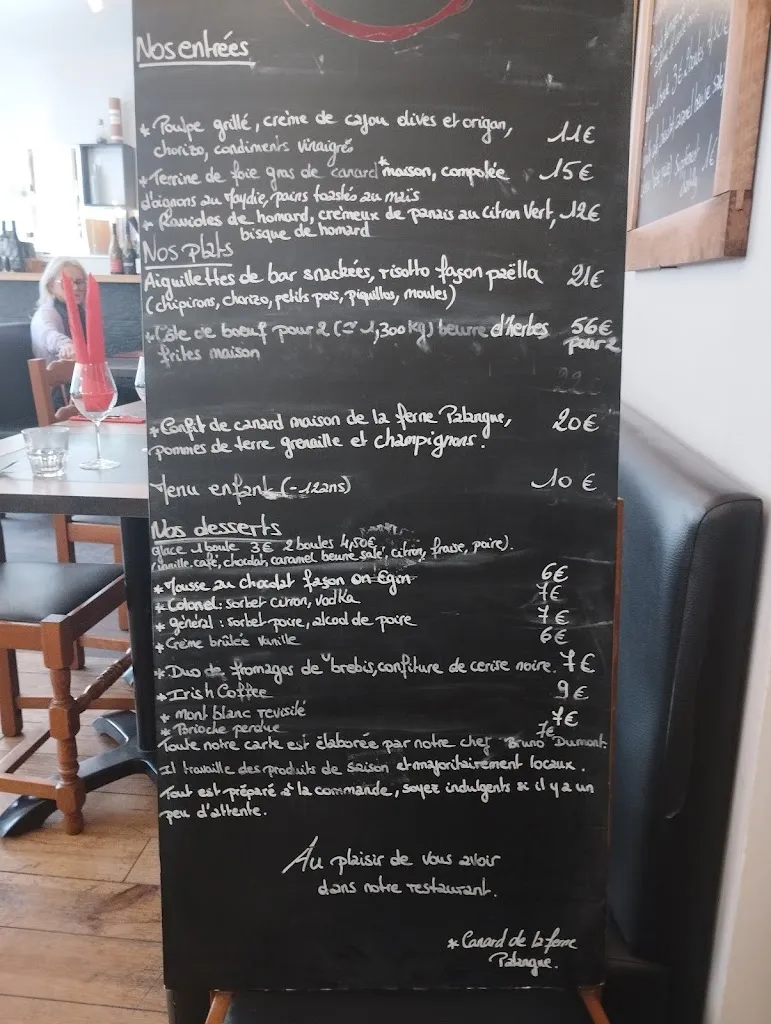 Nos entrées
* Poulpe grillé, crème de cajou olives et origan,
chorizo, condiments vinaigrés 11€
* Terrine de foie gras de canard* maison, compotée 15€
d'oignons au Maydie, pains toastés au maïs
* Ravioles de homard, crémeux de panais au citron vert, 12€
bisque de homard
Nos plats
Aiguillettes de bar snackées, risotto façon paëlla 21€
(chipirons, chorizo, petits pois, piquillos, moules)
* Côte de boeuf pour 2 (≃ 1,300 kg) beurre d'herbes 56€
frites maison pour 2
* Confit de canard maison de la ferme Palangue, 20€
pommes de terre grenaille et champignons.
Menu enfant (-12ans) 10 €
Nos desserts
glace 1 boule 3€ 2 boules 4,50€
(vanille, café, chocolat, caramel beurre salé, citron, fraise, poire).
* Mousse au chocolat façon 6€
* Colonel: sorbet citron, vodka 7€
* général : sorbet poire, alcool de poire 7€
* Crème brûlée vanille 6€
* Duo de fromages de brebis, confiture de cerise noire. 7€
* Irish Coffee 9€
* Mont blanc revisité 7€
* Brioche perdue 7€
Toute notre carte est élaborée par notre chef Bruno Dumont.
Il travaille des produits de saison et majoritairement locaux.
Tout est préparé à la commande, soyez indulgents si il y a un
peu d'attente.
Au plaisir de vous avoir
dans notre restaurant.
* Canard de la ferme
Palangue.